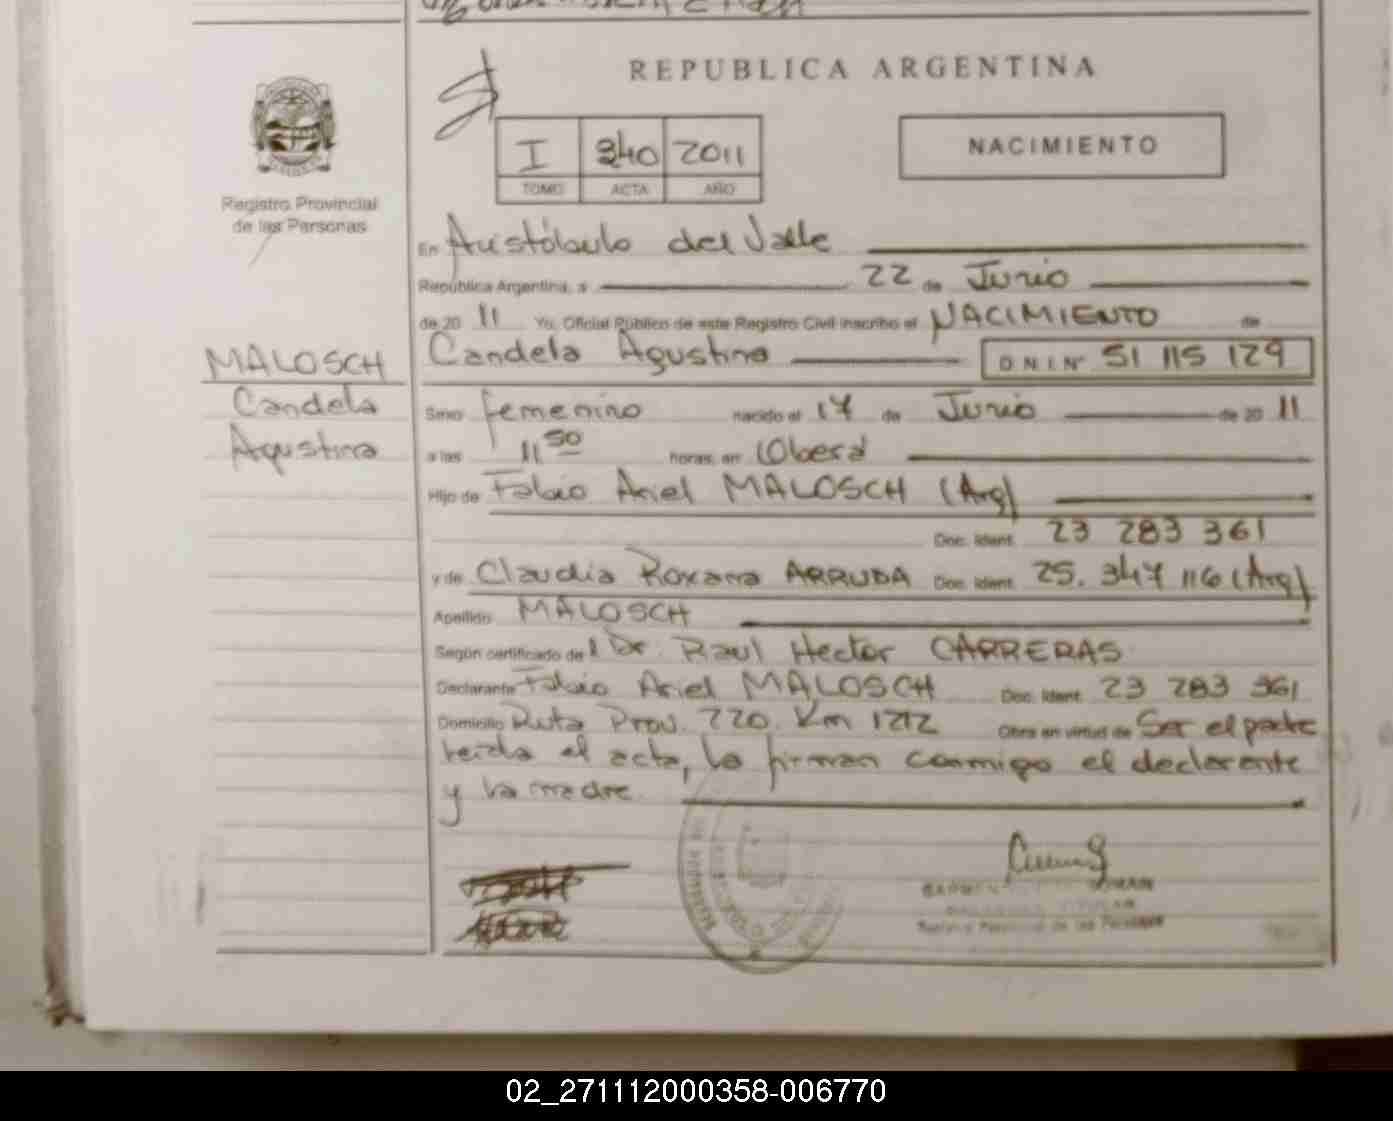 REPUBLICA ARGENTINA
I 340 2011
TOMO ACTA AÑO
NACIMIENTO
Registro Provincial
de las Personas
En Aristóbulo del Valle
República Argentina, a 22 de Junio
de 20 11 Yo, Oficial Público de este Registro Civil inscribo el NACIMIENTO de
Candela Agustina D N I Nº 51 115 129
MALOSCH
Candela
Agustina
Sexo femenino nacido el 17 de Junio de 20 11
a las 11 50 horas, en Oberá
Hijo de Fabio Ariel MALOSCH (Arg)
Doc. Ident. 23 283 361
y de Claudia Roxana ARRUDA Doc. Ident. 25.347 116 (Arg)
Apellido MALOSCH
Según certificado de l Dr. Raul Hector CARRERAS
Declarante Fabio Ariel MALOSCH Doc. Ident. 23 283 361
Domicilio Ruta Prov. 220. Km 1212 Obra en virtud de Ser el padre
leída el acta, la firman conmigo el declarante
y la madre.
Registro Provincial de las Personas
02_271112000358-006770